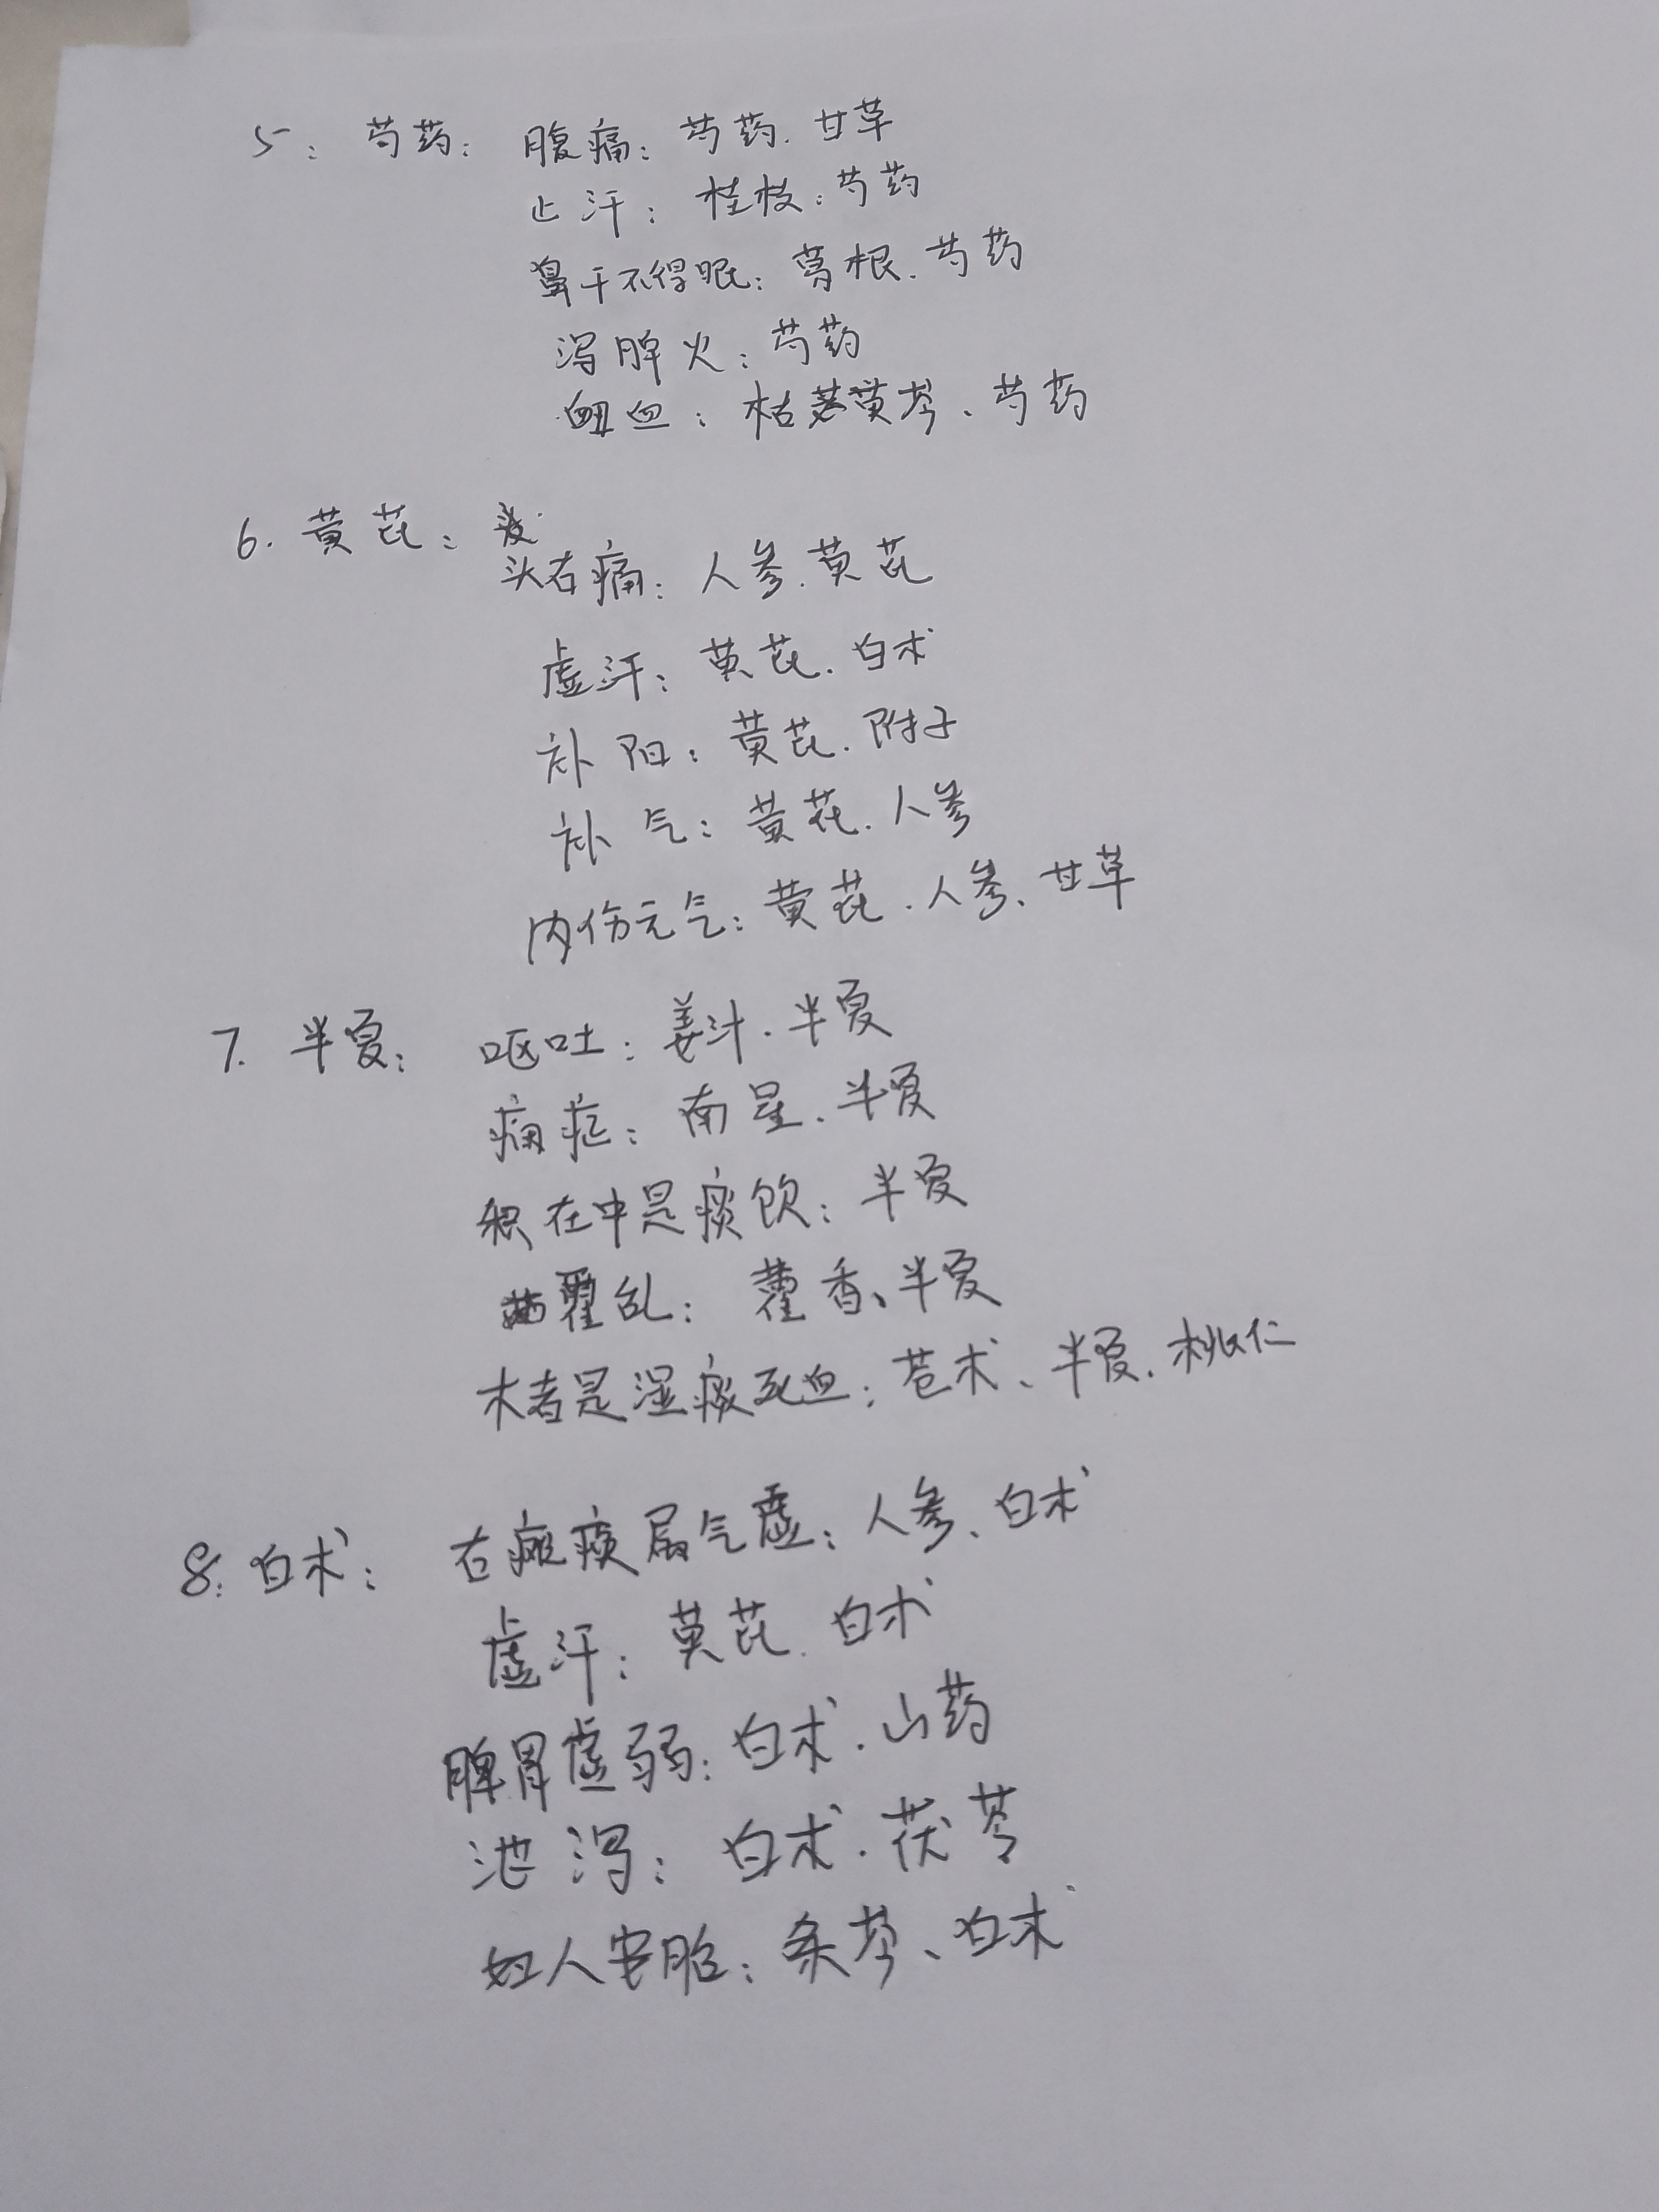 5: 芍药: 腹痛: 芍药.甘草
止汗: 桂枝.芍药
鼻干不得眠: 葛根.芍药
泻脾火: 芍药
衄血: 枯黄芩、芍药
6. 黄芪:
头右痛: 人参.黄芪
虚汗: 黄芪.白术
补阳: 黄芪.附子
补气: 黄芪.人参
内伤元气: 黄芪.人参、甘草
7. 半夏: 呕吐: 姜汁.半夏
痛症: 南星.半夏
积在中是痰饮: 半夏
霍乱: 藿香、半夏
木者是湿痰死血: 苍术、半夏.桃仁
8. 白术: 右瘫痪属气虚: 人参、白术
虚汗: 黄芪.白术
脾胃虚弱: 白术.山药
泄泻: 白术.茯苓
妇人安胎: 条芩、白术